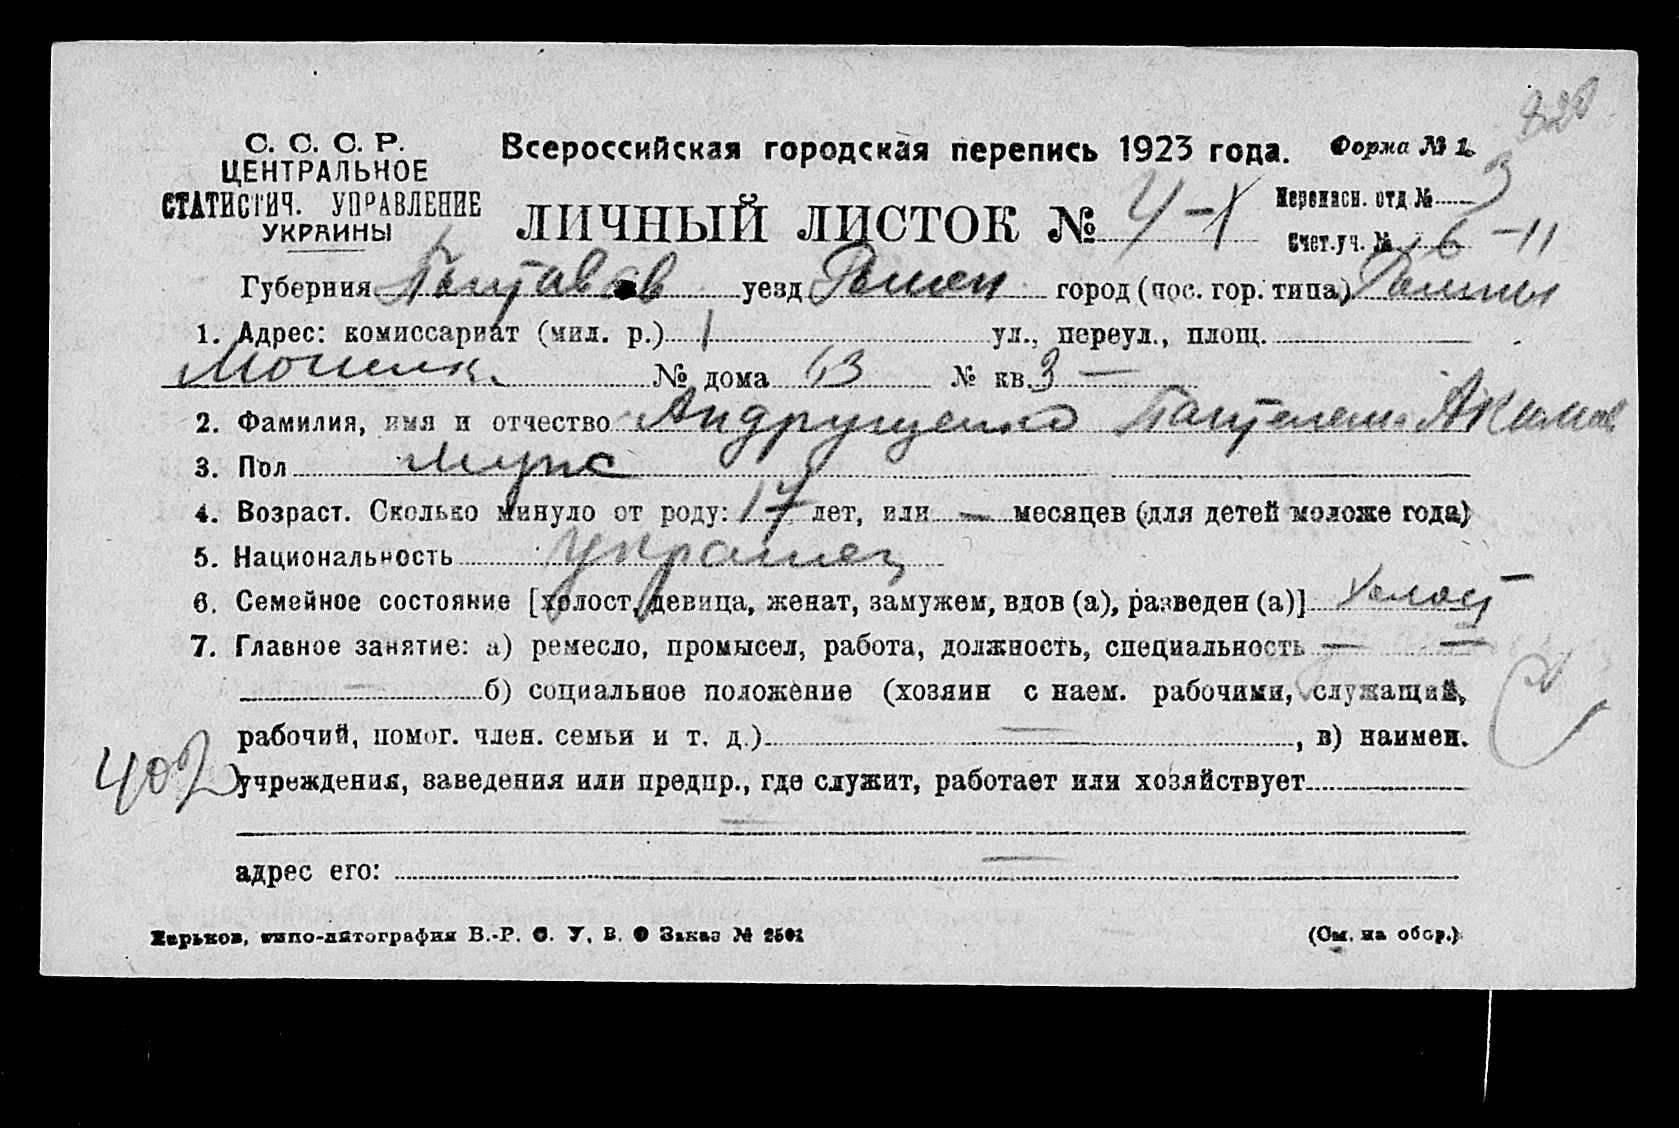 820
С. С. С. Р.
ЦЕНТРАЛЬНОЕ
СТАТИСТИЧ. УПРАВЛЕНИЕ
УКРАИНЫ
Всероссийская городская перепись 1923 года. Форма № 1.
ЛИЧНЫЙ ЛИСТОК № 4-1
Переписн. отд № 3
Счет.уч. № 6 -11
Губерния Полтавав уезд Ромен город (пос. гор. типа) Ромны
1. Адрес: комиссариат (мил. р.) 1 ул., переул., площ.
№ дома 13 № кв. 3 —
2. Фамилия, имя и отчество Андрущенко Пантелем. Акимов
3. Пол Мужс
4. Возраст. Сколько минуло от роду: 17 лет, или — месяцев (для детей моложе года)
5. Национальность украинец
6. Семейное состояние [холост, девица, женат, замужем, вдов (а), разведен (а)] холост
7. Главное занятие: а) ремесло, промысел, работа, должность, специальность — —
— б) социальное положение (хозяин с наем. рабочими, служащий,
рабочий, помог. член. семьи и т. д.) — , в) наимен.
402
учреждения, заведения или предпр., где служит, работает или хозяйствует
—
адрес его: —
Харьков, типо-литография В.-Р. С. У. В. О Заказ № 2501
(См. на обор.)